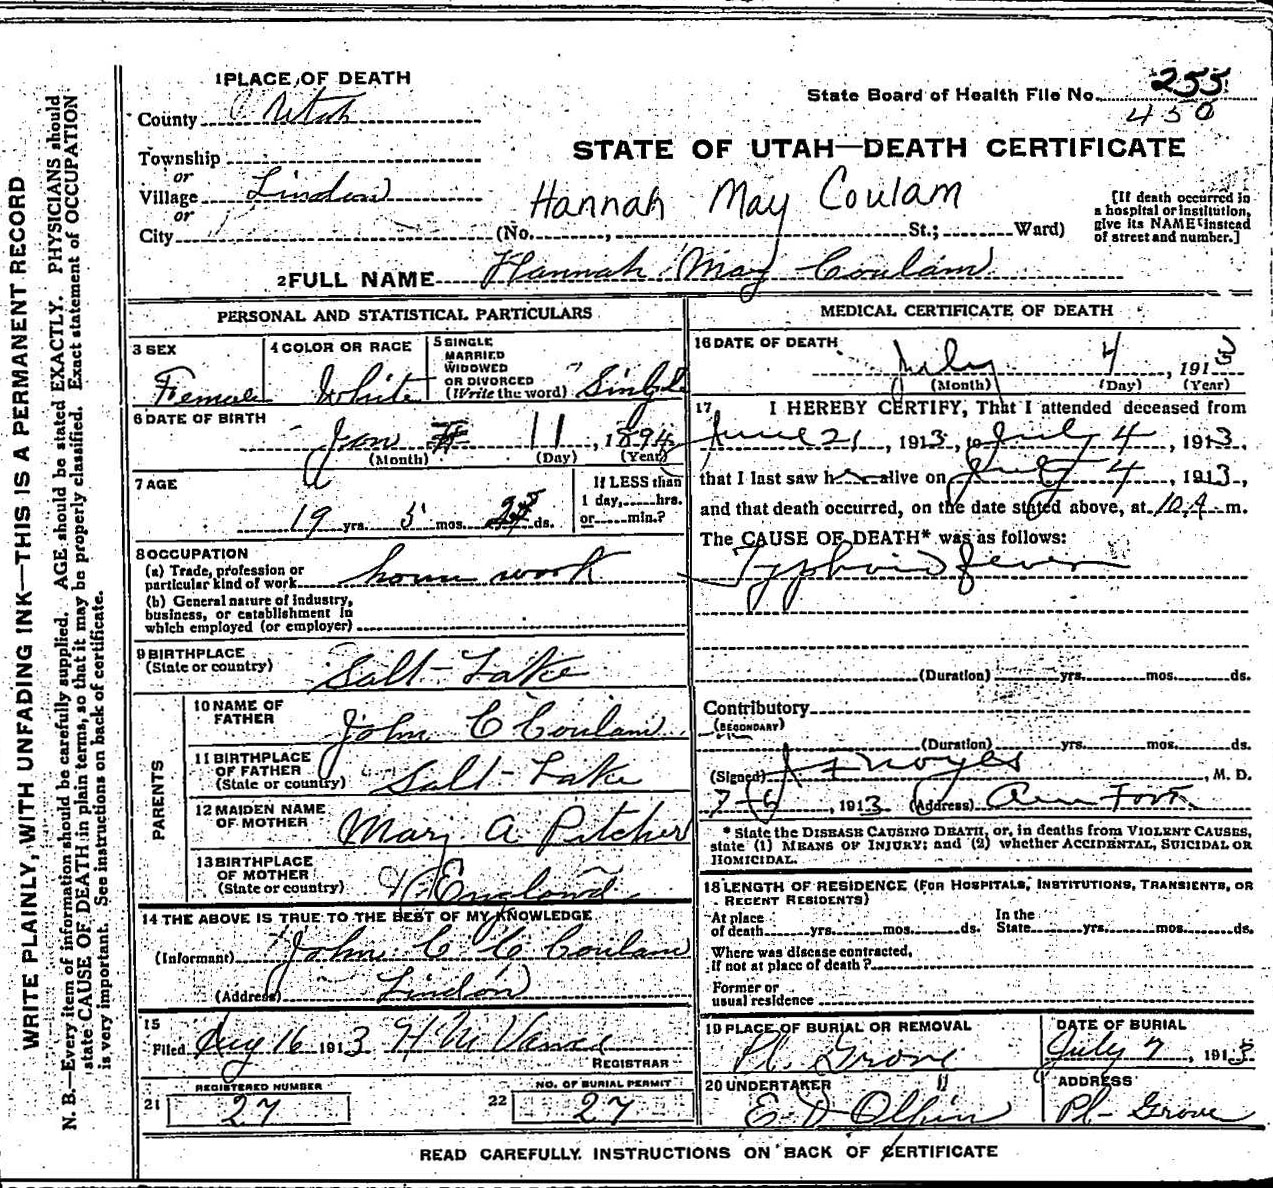 WRITE PLAINLY, WITH UNFADING INK—THIS IS A PERMANENT RECORD
N. B.—Every item of information should be carefully supplied. AGE should be stated EXACTLY. PHYSICIANS should
state CAUSE OF DEATH in plain terms, so that it may be properly classified. Exact statement of OCCUPATION
is very important. See instructions on back of certificate.
1 PLACE OF DEATH
State Board of Health File No. 255
450
County Utah
STATE OF UTAH—DEATH CERTIFICATE
Township
or
Village Lindon
or
City
Hannah May Coulam
(No. , St.; Ward)
[If death occurred in
a hospital or institution,
give its NAME instead
of street and number.]
2 FULL NAME Hannah May Coulam
PERSONAL AND STATISTICAL PARTICULARS
3 SEX
Female
4 COLOR OR RACE
White
5 SINGLE
MARRIED
WIDOWED
OR DIVORCED
(Write the word) Single
6 DATE OF BIRTH
Jan 11, 1894
(Month) (Day) (Year)
7 AGE
19 yrs. 5 mos. ds.
If LESS than
1 day, hrs.
or min.?
8 OCCUPATION
(a) Trade, profession or
particular kind of work house work
(b) General nature of industry,
business, or establishment in
which employed (or employer)
9 BIRTHPLACE
(State or country) Salt Lake
PARENTS
10 NAME OF
FATHER John C Coulam
11 BIRTHPLACE
OF FATHER
(State or country) Salt Lake
12 MAIDEN NAME
OF MOTHER Mary A Pitcher
13 BIRTHPLACE
OF MOTHER
(State or country) England
14 THE ABOVE IS TRUE TO THE BEST OF MY KNOWLEDGE
(Informant) John C Coulam
(Address) Lindon
15
Filed Aug 16 1913 H M Vance
REGISTRAR
REGISTERED NUMBER
21 27
NO. OF BURIAL PERMIT
22 27
MEDICAL CERTIFICATE OF DEATH
16 DATE OF DEATH
July 4, 1913
(Month) (Day) (Year)
17 I HEREBY CERTIFY, That I attended deceased from
June 21, 1913, to July 4, 1913,
that I last saw her alive on July 4, 1913,
and that death occurred, on the date stated above, at 10 A m.
The CAUSE OF DEATH* was as follows:
Typhoid fever
(Duration) yrs. mos. ds.
Contributory
(SECONDARY)
(Duration) yrs. mos. ds.
(Signed) Noyes, M. D.
7-6, 1913 (Address) Am Fork
* State the DISEASE CAUSING DEATH, or, in deaths from VIOLENT CAUSES,
state (1) MEANS OF INJURY; and (2) whether ACCIDENTAL, SUICIDAL OR
HOMICIDAL.
18 LENGTH OF RESIDENCE (FOR HOSPITALS, INSTITUTIONS, TRANSIENTS, OR
RECENT RESIDENTS)
At place
of death yrs. mos. ds.
In the
State yrs. mos. ds.
Where was disease contracted,
If not at place of death?
Former or
usual residence
19 PLACE OF BURIAL OR REMOVAL
Pl. Grove
DATE OF BURIAL
July 7, 1913
20 UNDERTAKER
E D Olpin
ADDRESS
Pl- Grove
READ CAREFULLY. INSTRUCTIONS ON BACK OF CERTIFICATE